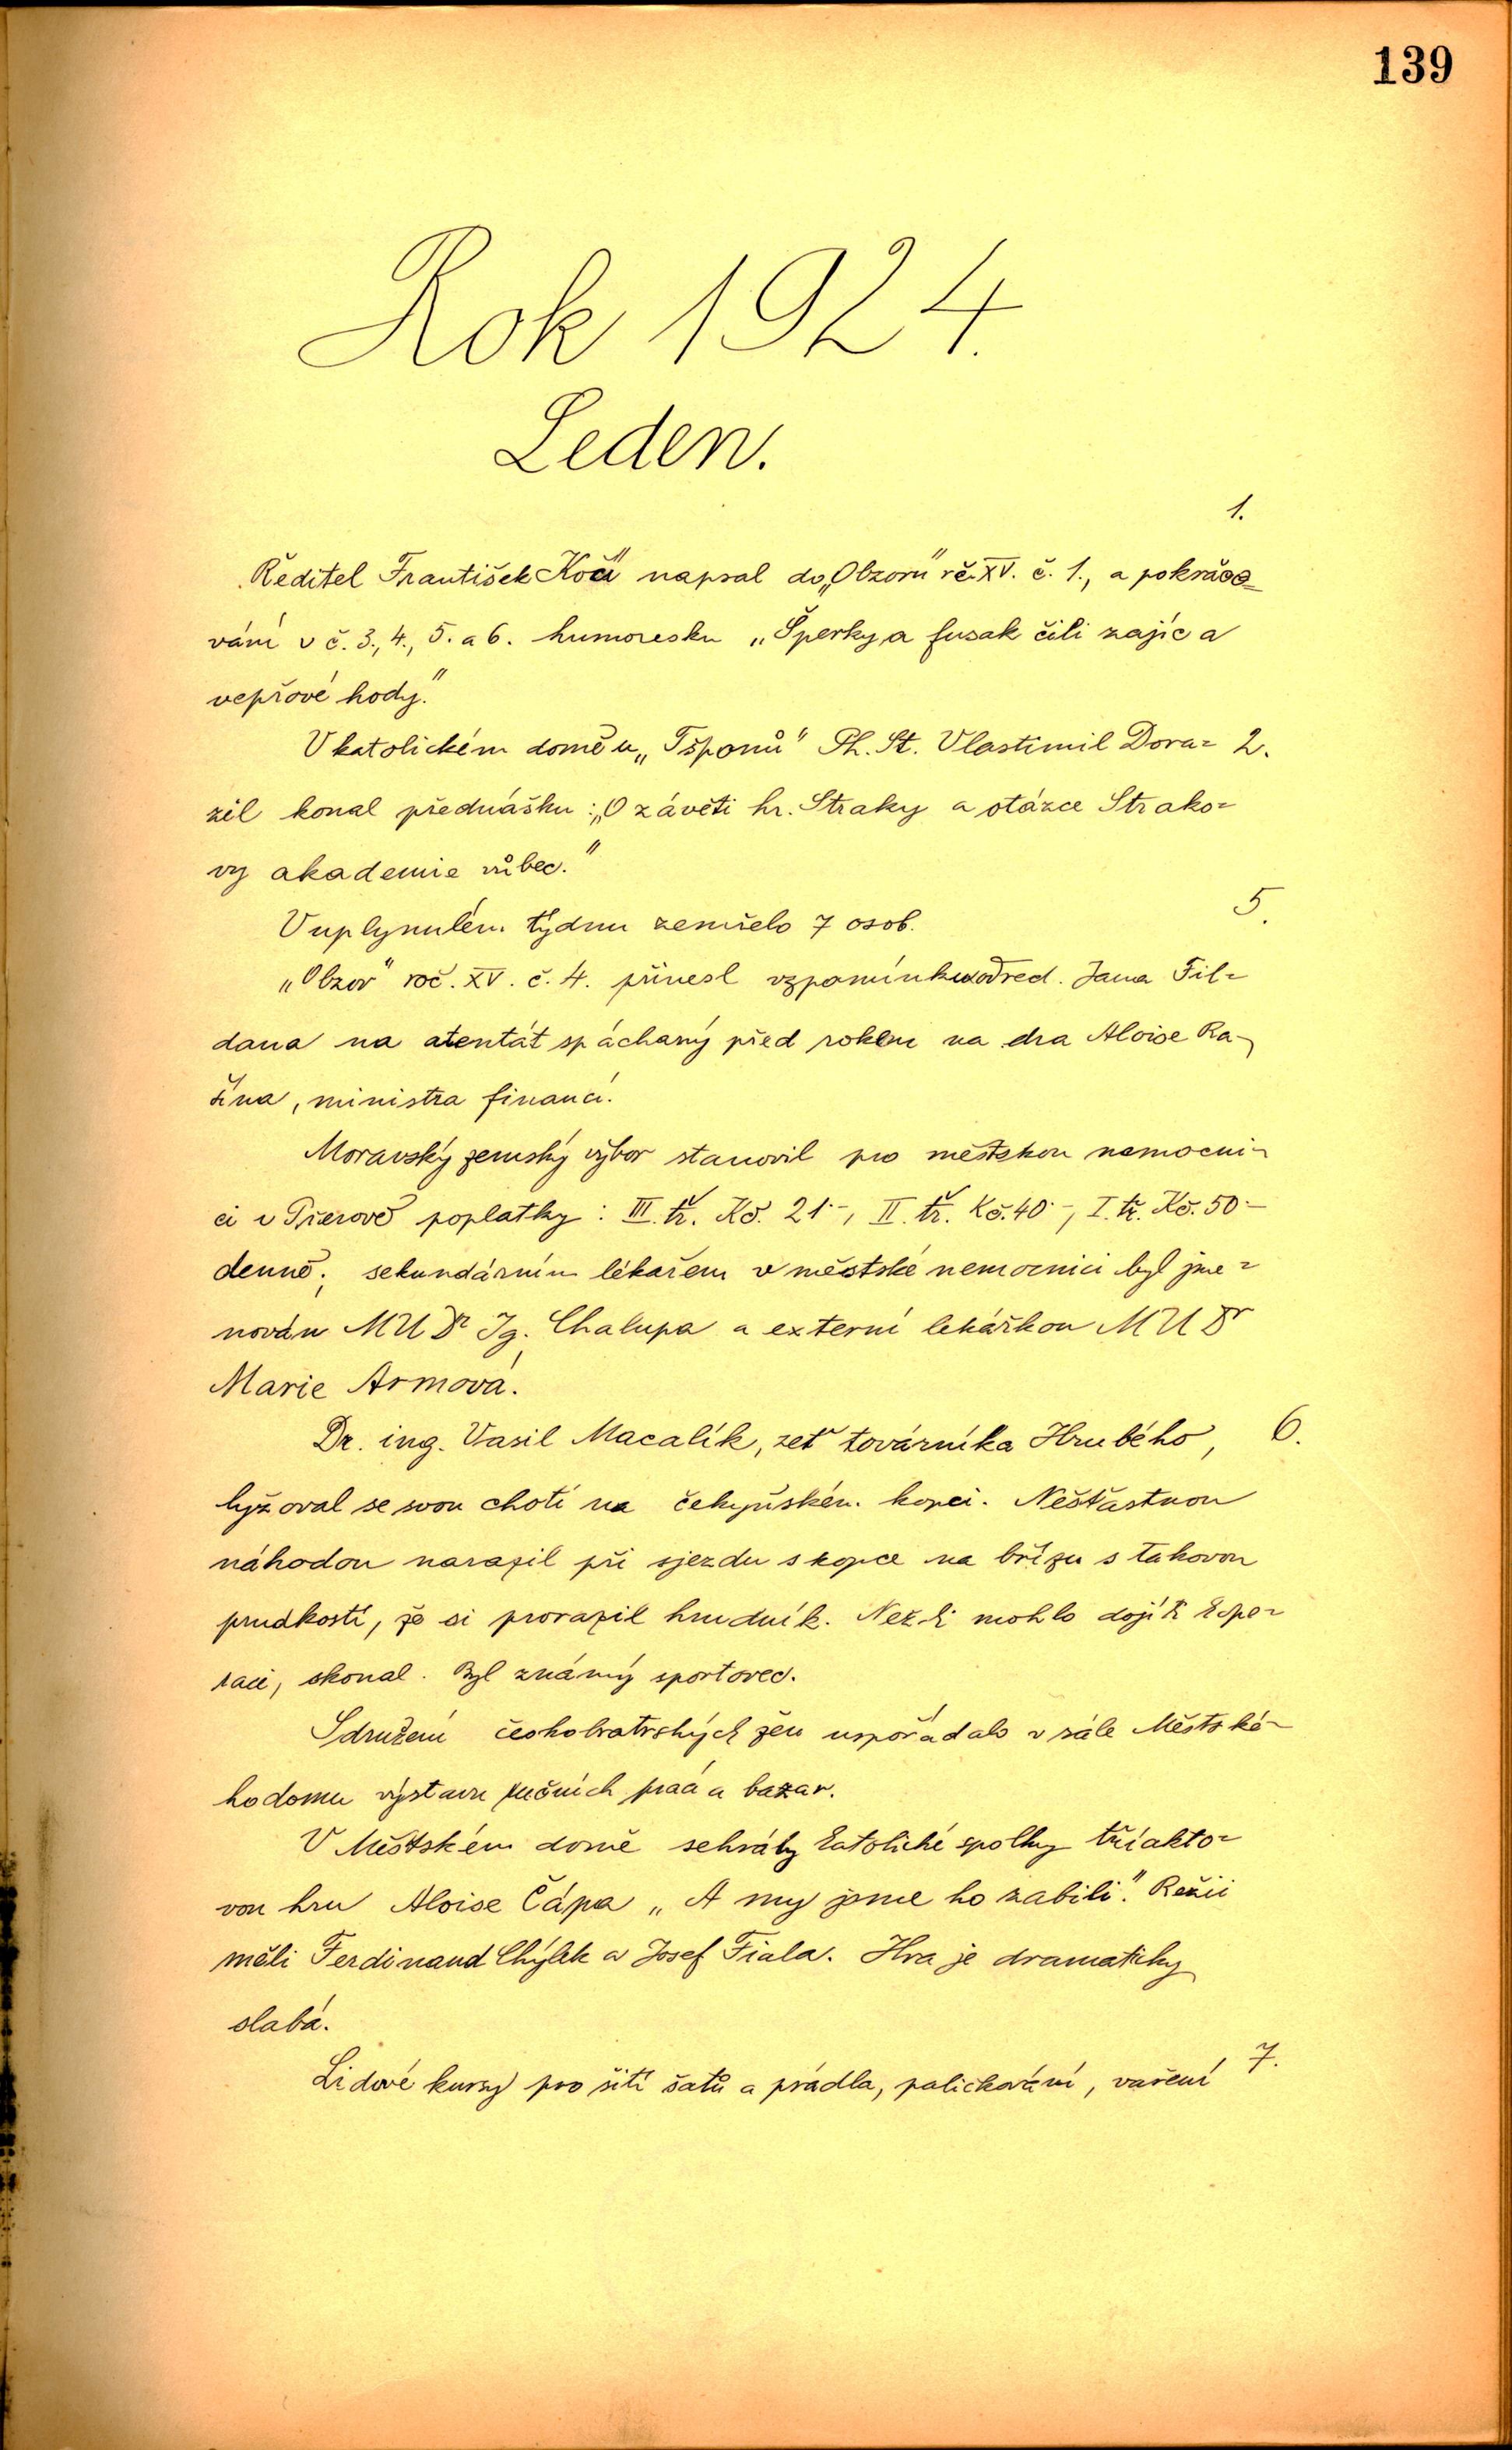 139
Rok 1924.
Leden.
1.
Ředitel František Kočí napsal do „Obzoru" rč. XV. č. 1., a pokračo=
vání v č. 3., 4., 5. a 6. humoresku „Šperky a fusak čili zajíc a
vepřové hody."
V katolickém domě u „Tšponů" Ph. St. Vlastimil Dora= 2.
zil konal přednášku: „O závěti hr. Straky a otázce Strako=
vy akademie vůbec."
V uplynulém týdnu zemřelo 7 osob. 5.
„Obzor" roč. XV. č. 4. přinesl vzpomínku od red. Jana Fil=
dana na atentát spáchaný před rokem na dra Aloise Ra-
šína, ministra financí.
Moravský zemský výbor stanovil pro městskou nemocni-
ci v Přerově poplatky: III. tř. Kč. 21·-, II. tř. Kč. 40·-, I. tř. Kč. 50·-
denně; sekundárním lékařem v městské nemocnici byl jme=
nován MUDr Ig. Chalupa a externí lékářkou MUDr
Marie Armová.
Dr. ing. Vasil Macalík, zeť továrníka Hrubého, 6.
lyžoval se svou chotí na čekyňském kopci. Nešťastnou
náhodou narazil při sjezdu s kopce na břízu s takovou
prudkostí, že si prorazil hrudník. Nežli mohlo dojíti k ope-
raci, skonal. Byl známý sportovec.
Sdružení českobratrských žen uspořádalo v sále Městské-
ho domu výstavu ručních prací a bazar.
V Městském domě sehrály katolické spolky tříakto=
vou hru Aloise Čápa „A my jsme ho zabili." Režii
měli Ferdinand Chýlek a Josef Fiala. Hra je dramaticky
slabá.
Lidové kursy pro šití šatů a prádla, paličkování, vaření 7.